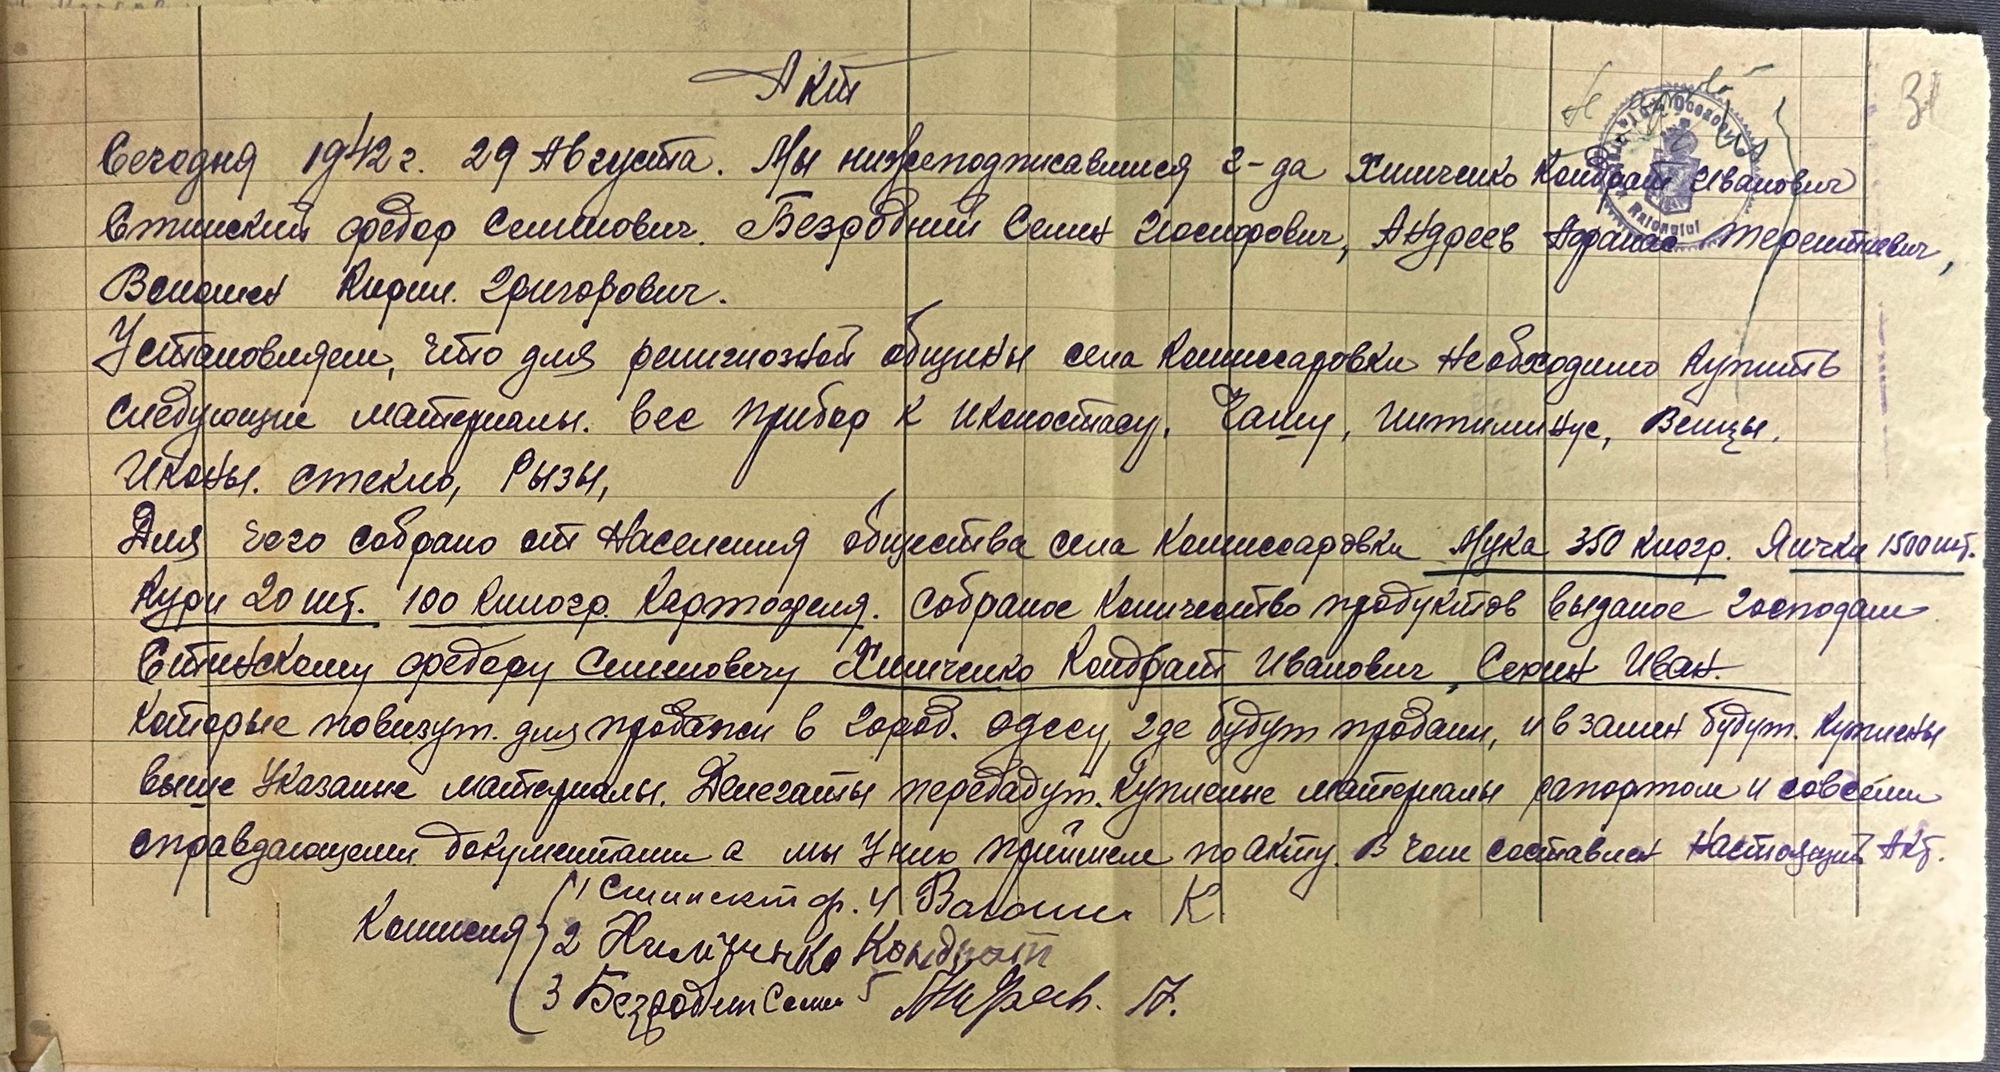 Акт
31
Сегодня 1942 г. 29 Августа. Мы нижеподписавшиеся г-да Химченко Кондрат Иванович
Стинский Федор Семенович. Безродний Семен Иосифович, Андреев Афанас Терентиевич,
Волошен Кирил. Григорович.
Установляем, что для религиозной общины села Комиссаровки необходимо купить
следующие материалы. вес прибор к иконостасу, Чашу, Венцы,
Иконы. стекло, Рызы,
Для чего собрано от Населения общества села Комиссаровки Мука 350 килогр. Яички 1500 шт.
Кури 20 шт. 100 Килогр. Картофеля. собраное количество продуктов выданое господам
Стинскому Федору Семеновичу Химченко Кондрат Иванович, Иван.
которые повизут. для продажи в город. Одессу, где будут продани, и в замен будут. куплены
выше указаные материалы. Делегаты передадут. купленые материалы рапортом и совсеми
справдающеми документами а мы у них приймем по акту. В чом составлен настоящий Акт.
Комисия 1 Стинский ф. 4 Волошин К
2 Химченко Кондрат
3 Безродний Семен 5 Андреев. А.
Raionului